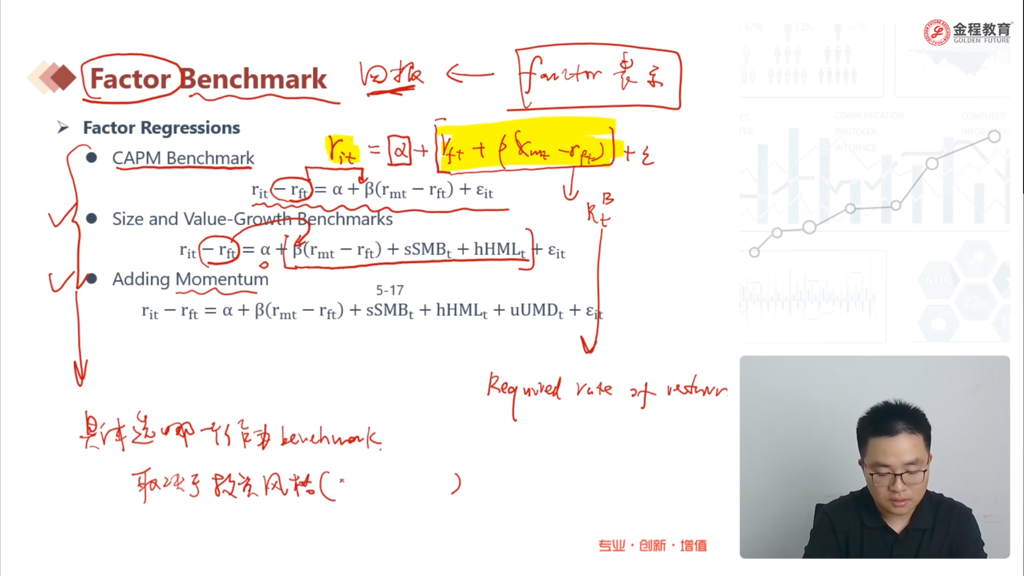 金程教育
GOLDEN FUTURE
Factor Benchmark 回报 ← factor 表示
Factor Regressions
r_it = α + r_ft + β(r_mt − r_ft) + ε
CAPM Benchmark
r_it − r_ft = α + β(r_mt − r_ft) + ε_it
R_t^B
Size and Value-Growth Benchmarks
r_it − r_ft = α + β(r_mt − r_ft) + sSMB_t + hHML_t + ε_it
Adding Momentum
5-17
r_it − r_ft = α + β(r_mt − r_ft) + sSMB_t + hHML_t + uUMD_t + ε_it
Required rate of return
具体选哪一个作为 benchmark
取决于投资风格( )
专业·创新·增值